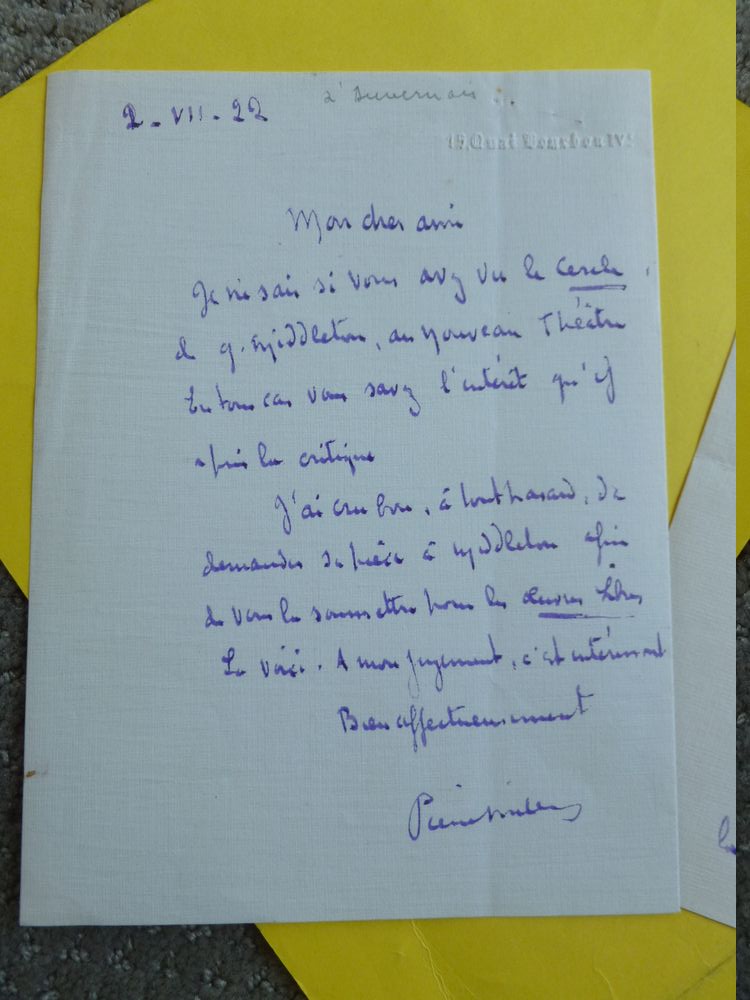 2 - VII - 22
à Duvernois
15, Quai Bourbon IVe
Mon cher ami
Je ne sais si vous avez vu le Cercle,
de G. Middleton, au Nouveau Théâtre
En tous cas vous savez l'intérêt qu'y
a pris la critique
J'ai cru bon, à tout hasard, de
demander sa pièce à Middleton afin
de vous la soumettre pour les Œuvres Libres
La voici. A mon jugement, c'est intéressant
Bien affectueusement
Pierre Mille